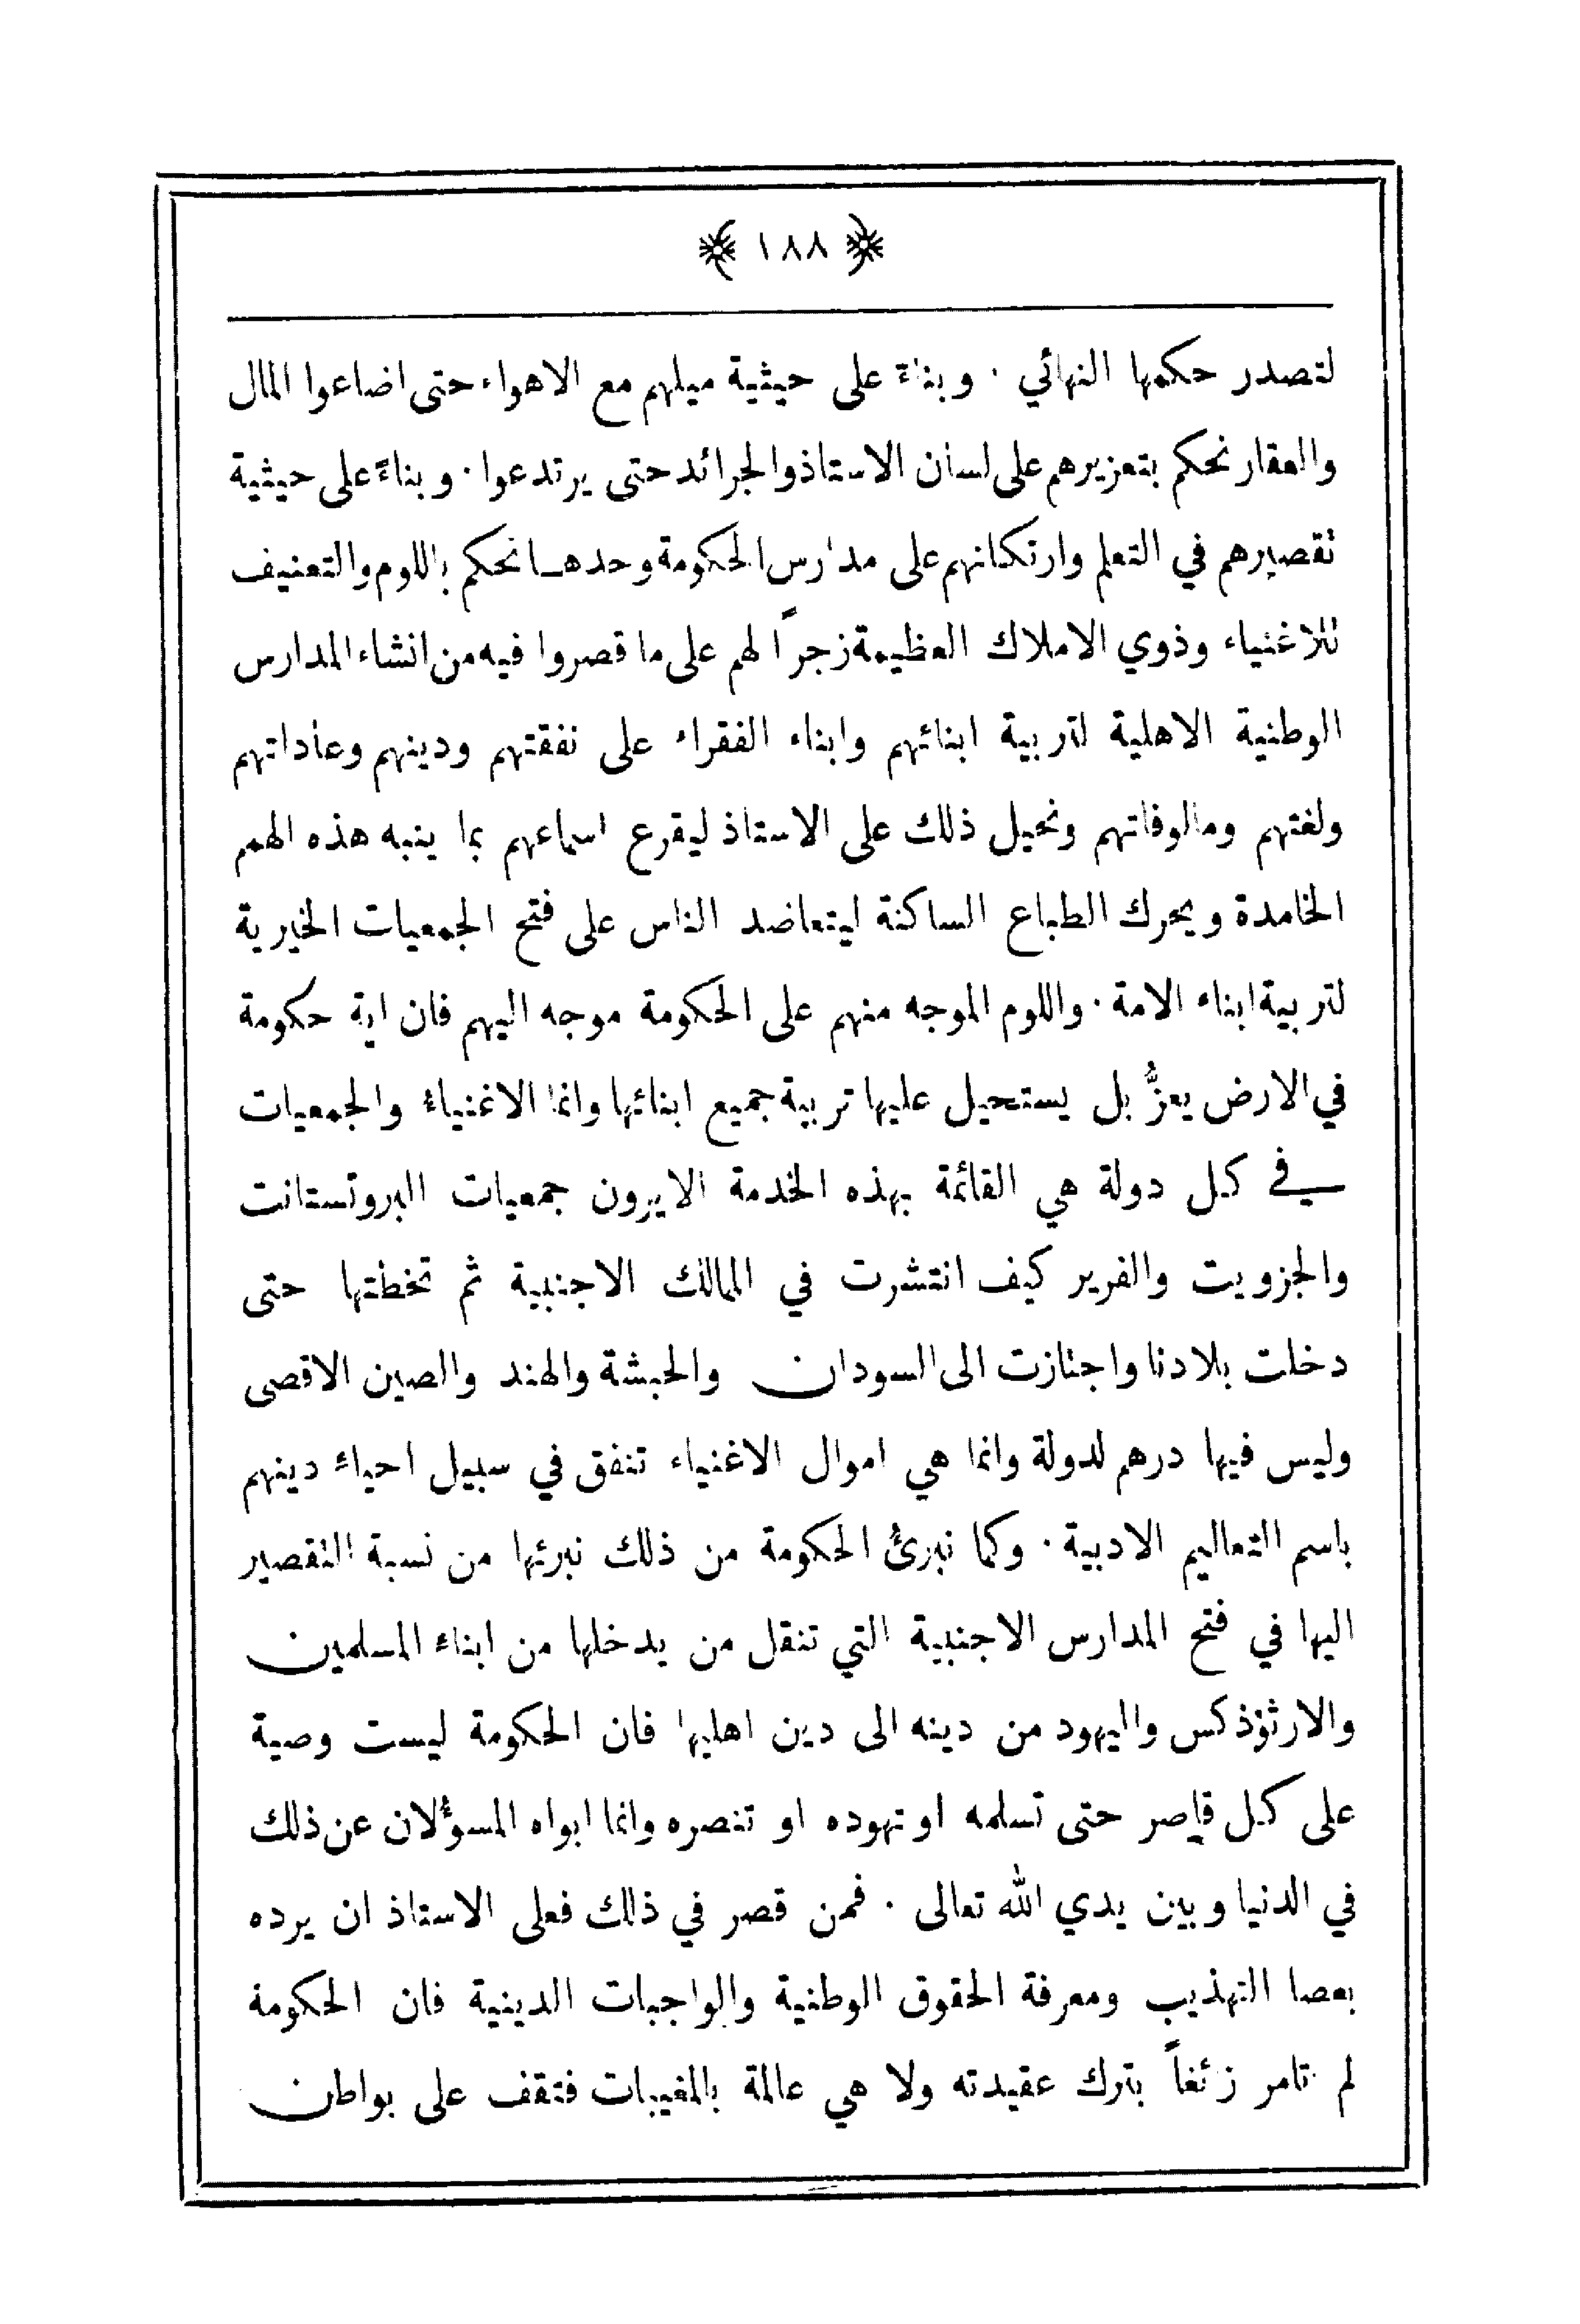 ١٨٨
لتصدر حكمها النهائي · وبناءً على حيثية ميلهم مع الاهواء حتى اضاعوا المال
والعقار نحكم بتعزيرهم على لسان الاستاذ والجرائد حتى يرتدعوا · وبناءً على حيثية
تقصيرهم في التعلم وارتكانهم على مدارس الحكومة وحدها نحكم باللوم والتعنيف
للاغنياء وذوي الاملاك العظيمة زجرًا لهم على ما قصروا فيه من انشاء المدارس
الوطنية الاهلية لتربية ابنائهم وابناء الفقراء على نفقتهم ودينهم وعاداتهم
ولغتهم ومالوفاتهم ونحيل ذلك على الاستاذ ليقرع اسماعهم بما ينبه هذه الهمم
الخامدة ويحرك الطباع الساكنة ليتعاضد الناس على فتح الجمعيات الخيرية
لتربية ابناء الامة · واللوم الموجه منهم على الحكومة موجه اليهم فان اية حكومة
في الارض يعزُّ بل يستحيل عليها تربية جميع ابنائها وانما الاغنياء والجمعيات
في كل دولة هي القائمة بهذه الخدمة الايرون جمعيات البروتستانت
والجزويت والفرير كيف انتشرت في الممالك الاجنبية ثم تخطتها حتى
دخلت بلادنا واجتازت الى السودان والحبشة والهند والصين الاقصى
وليس فيها درهم لدولة وانما هي اموال الاغنياء تنفق في سبيل احياء دينهم
باسم التعاليم الادبية · وكما نبرئُ الحكومة من ذلك نبرئها من نسبة التقصير
اليها في فتح المدارس الاجنبية التي تنقل من يدخلها من ابناء المسلمين
والارثوذكس واليهود من دينه الى دين اهليها فان الحكومة ليست وصية
على كل قاصر حتى تسلمه او تهوده او تنصره وانما ابواه المسؤلان عن ذلك
في الدنيا وبين يدي الله تعالى · فمن قصر في ذلك فعلى الاستاذ ان يرده
بعصا التهذيب ومعرفة الحقوق الوطنية والواجبات الدينية فان الحكومة
لم تامر زائغاً بترك عقيدته ولا هي عالمة بالمغيبات فتقف على بواطن